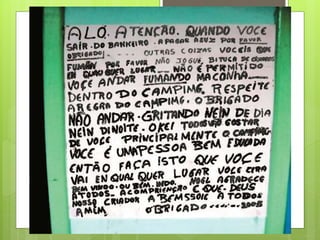 ALO. ATENÇÃO. QUANDO VOCE
SAIR. DO BANHEIRO. APAGAR A LUZ POR FAVOR
OBRIGADO! .... OUTRAS COIZAS VOCEIS QUE
FUMAN POR FAVOR NÃO JOGUE, BITUCA DE CIGARROS
EN QUALQUER LUGAR ... NÃO É PERMITIDO
VOCE ANDAR FUMANDO MACONHA....
DENTRO DO CAMPIMG, RESPEITE
A REGRA DO CAMPIMG. OBRIGADO
NÃO ANDAR. GRITANDO NEIN DE DIA
NEIN DINOITE. OKEI TODOS VÃO GOSTAR
DE VOCE PRINCIPALMENTE O CAMPIMG.
VOCE É UMA PESSOA BEM EDUCADA
ENTÃO FAÇA ISTO QUE VOCE
VAI EN QUALQUER LUGAR VOCE CERA
BEM VINDO. OU BEM. VINDO. NOIS AGRADECE
A TODOS. A COMPRIENÇÃO E QUE. DEUS
NOSSO CRIADOR A BEMSSOIE A TODOS
AMEM. OBRIGADO